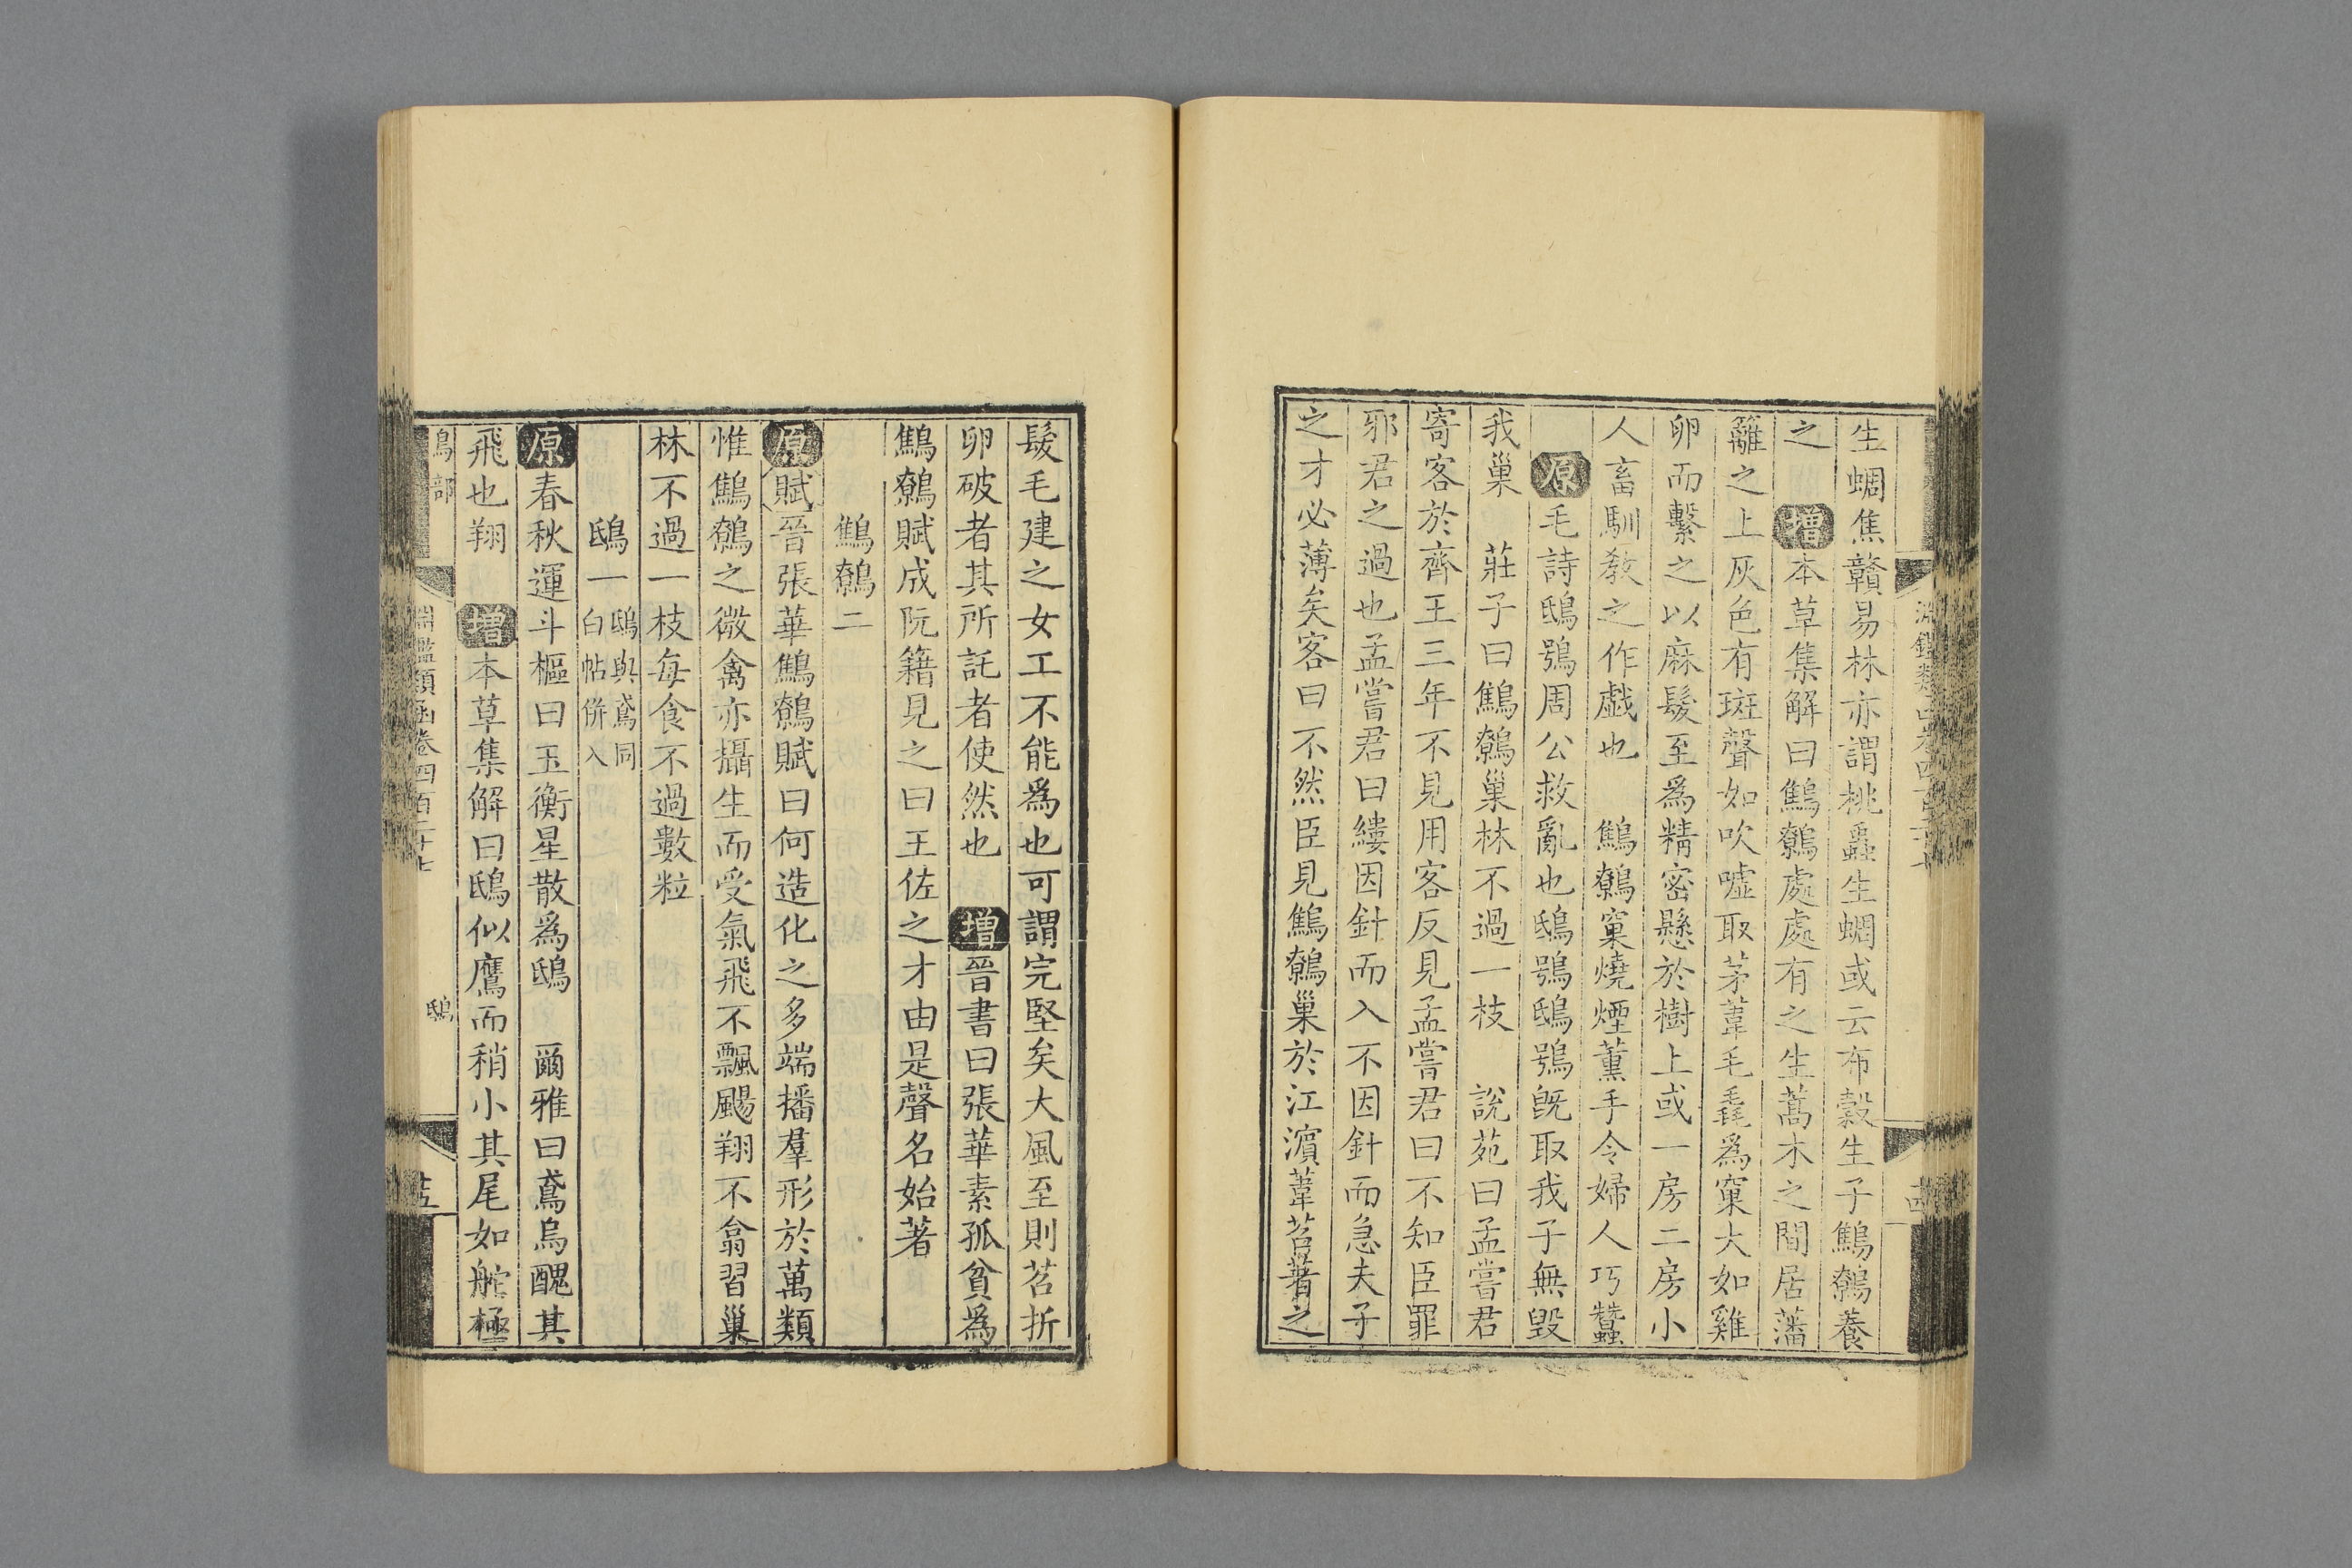 生蜩焦贛易林亦謂桃蟲生蜩或云布穀生子鷦鷯養
之　增本草集解曰鷦鷯處處有之生蒿木之間居藩
籬之上灰色有斑聲如吹噓取茅葦毛毳爲窠大如雞
卵而繫之以麻髮至爲精密懸於樹上或一房二房小
人畜馴教之作戲也　鷦鷯窠燒煙薰手令婦人巧蠶
原毛詩鴟鴞周公救亂也鴟鴞鴟鴞旣取我子無毀
我巢　莊子曰鷦鷯巢林不過一枝　說苑曰孟嘗君
寄客於齊王三年不見用客反見孟嘗君曰不知臣罪
邪君之過也孟嘗君曰縷因針而入不因針而急夫子
之才必薄矣客曰不然臣見鷦鷯巢於江濵葦苕著之
髮毛建之女工不能爲也可謂完堅矣大風至則苕折
卵破者其所託者使然也　增晉書曰張華素孤貧爲
鷦鷯賦成阮籍見之曰王佐之才由是聲名始著
鷦鷯二
原賦晉張華鷦鷯賦曰何造化之多端播羣形於萬類
惟鷦鷯之微禽亦攝生而受氣飛不飄颺翔不翕習巢
林不過一枝每食不過數粒
鴟一鴟與鳶同白帖併入
原春秋運斗樞曰玉衡星散爲鴟　爾雅曰鳶烏醜其
飛也翔　增本草集解曰鴟似鷹而稍小其尾如舵極
鳥部
淵鑑類函卷四百二十七
鴟